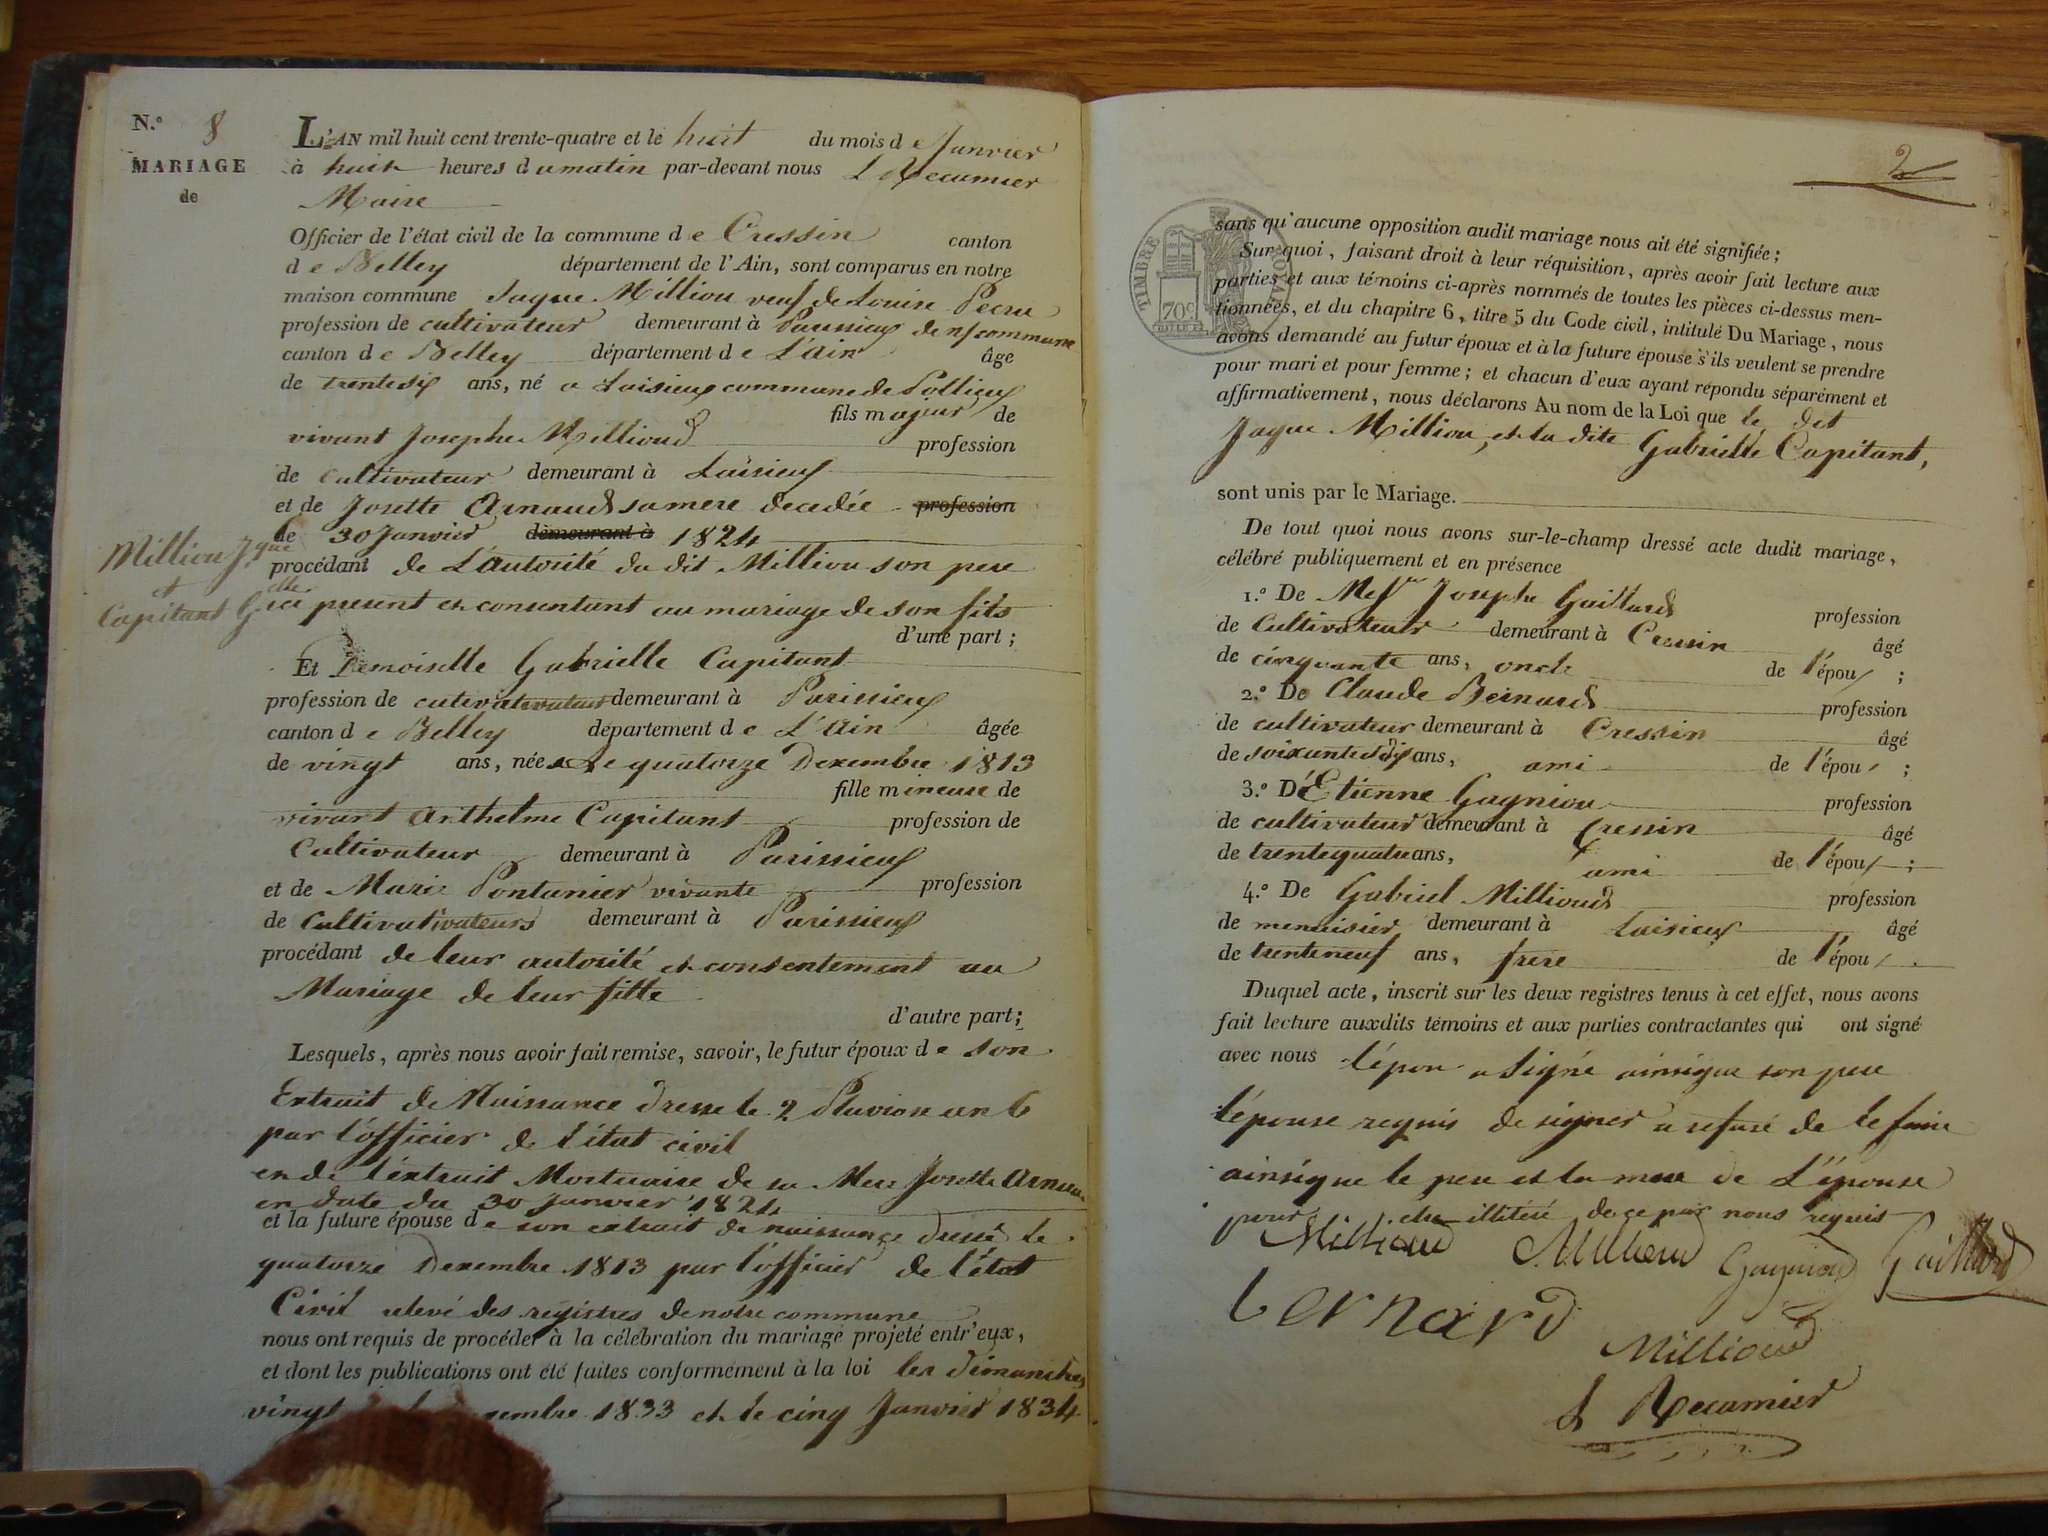 N.º 8
MARIAGE
de
Milliou Jque
et
Capitant Gelle
L'AN mil huit cent trente-quatre et le huit du mois de Janvier
à huit heures du matin par-devant nous L Recamier
Maire
Officier de l'état civil de la commune de Cressin canton
de Belley département de l'Ain, sont comparus en notre
maison commune Jaque Milliou veuf de Louise Pecru
profession de cultivateur demeurant à Parissieux de n/commune
canton de Belley département de L'ain âge
de trentesix ans, né a Laisieux commune de Pollieux
fils majeur de
vivant Josephe Millioud profession
de cultivateur demeurant à Laisieux
et de Josette Arnaud sa mere decedée profession
le 30 Janvier demeurant à 1824
procédant de L'autorité du dit Milliou son pere
ici present et consentant au mariage de son fils
d'une part ;
Et Demoiselle Gabrielle Capitant
profession de cutivativateur demeurant à Parissieux
canton de Belley département de L'Ain âgée
de vingt ans, née le quatorze Dexembre 1813
fille mineure de
vivant Anthelme Capitant profession de
Cultivateur demeurant à Parissieux
et de Marie Pontanier vivante profession
de Cultivativateurs demeurant à Parissieux
procédant de leur autorité et consentement au
Mariage de leur fille
d'autre part ;
Lesquels, après nous avoir fait remise, savoir, le futur époux de son
Extrait de Naissance dressé le 2 Pluviose an 6
par l'officier de l'état civil
et de l'éxtrait Mortuaire de sa Mere Josette Arnaud
en date du 30 Janvier 1824
et la future épouse de son extrait de naissance dressé le
quatorze Dexembre 1813 par l'officier de l'état
Civil relevé des registres de notre commune
nous ont requis de procéder à la célébration du mariage projeté entr'eux,
et dont les publications ont été faites conformément à la loi les dimanches
vingt 1833 et le cinq Janvier 1834
2
TIMBRE ROYAL
70c
sans qu'aucune opposition audit mariage nous ait été signifiée ;
Sur quoi, faisant droit à leur réquisition, après avoir fait lecture aux
parties et aux témoins ci-après nommés de toutes les pièces ci-dessus men-
tionnées, et du chapitre 6, titre 5 du Code civil, intitulé Du Mariage, nous
avons demandé au futur époux et à la future épouse s'ils veulent se prendre
pour mari et pour femme ; et chacun d'eux ayant répondu séparément et
affirmativement, nous déclarons Au nom de la Loi que le dit
Jaque Milliou, et la dite Gabrielle Capitant,
sont unis par le Mariage.
De tout quoi nous avons sur-le-champ dressé acte dudit mariage,
célébré publiquement et en présence
1.º De Joseph Gaillard profession
de Cultivateur demeurant à Cressin âgé
de cinquante ans, oncle de l'épou ;
2.º De Claude Bernard profession
de cultivateur demeurant à Cressin âgé
de ans, ami de l'épou ;
3.º D'Etienne Gagniou profession
de cultivateur demeurant à Cressin âgé
de trentequatre ans, ami de l'épou ;
4.º De Gabriel Millioud profession
de menuisier demeurant à Laisieux âgé
de trenteneuf ans, frere de l'épou
Duquel acte, inscrit sur les deux registres tenus à cet effet, nous avons
fait lecture auxdits témoins et aux parties contractantes qui ont signé
avec nous l'épou a signé ainsique son pere
l'épouse requis de signer a refusé de le faire
ainsique le pere et la mere de L'épouse
pour etre illitéré de ce par nous requis
Millioud Millioud Gagniou Gaillard
bernard
Millioud
L Recamier